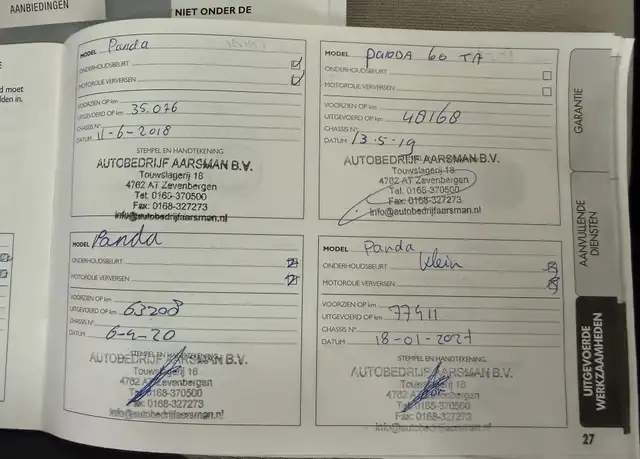 AANBIEDINGEN
NIET ONDER DE
d moet
lden in.
MODEL Panda
ONDERHOUDSBEURT
MOTOROLIE VERVERSEN
VOORZIEN OP km
UITGEVOERD OP km 35.076
CHASSIS N°
DATUM 11-6-2018
STEMPEL EN HANDTEKENING
AUTOBEDRIJF AARSMAN B.V.
Touwslagerij 18
4762 AT Zevenbergen
Tel: 0168-370500
Fax: 0168-327273
info@autobedrijfaarsman.nl
MODEL panda 60 TA
ONDERHOUDSBEURT
MOTOROLIE VERVERSEN
VOORZIEN OP km
UITGEVOERD OP km 48168
CHASSIS N°
DATUM 13-5-19
STEMPEL EN HANDTEKENING
AUTOBEDRIJF AARSMAN B.V.
Touwslagerij 18
4762 AT Zevenbergen
Tel: 0168-370500
Fax: 0168-327273
info@autobedrijfaarsman.nl
MODEL Panda
ONDERHOUDSBEURT
MOTOROLIE VERVERSEN
VOORZIEN OP km
UITGEVOERD OP km 63208
CHASSIS N°
DATUM 6-4-20
STEMPEL EN HANDTEKENING
AUTOBEDRIJF AARSMAN B.V.
Touwslagerij 18
4762 AT Zevenbergen
Tel: 0168-370500
Fax: 0168-327273
info@autobedrijfaarsman.nl
MODEL Panda
Klein
ONDERHOUDSBEURT
MOTOROLIE VERVERSEN
VOORZIEN OP km
UITGEVOERD OP km 77411
CHASSIS N°
DATUM 18-01-2021
STEMPEL EN HANDTEKENING
AUTOBEDRIJF AARSMAN B.V.
Touwslagerij 18
4762 AT Zevenbergen
Tel: 0168-370500
Fax: 0168-327273
info@autobedrijfaarsman.nl
GARANTIE
AANVULLENDE
DIENSTEN
UITGEVOERDE
WERKZAAMHEDEN
27